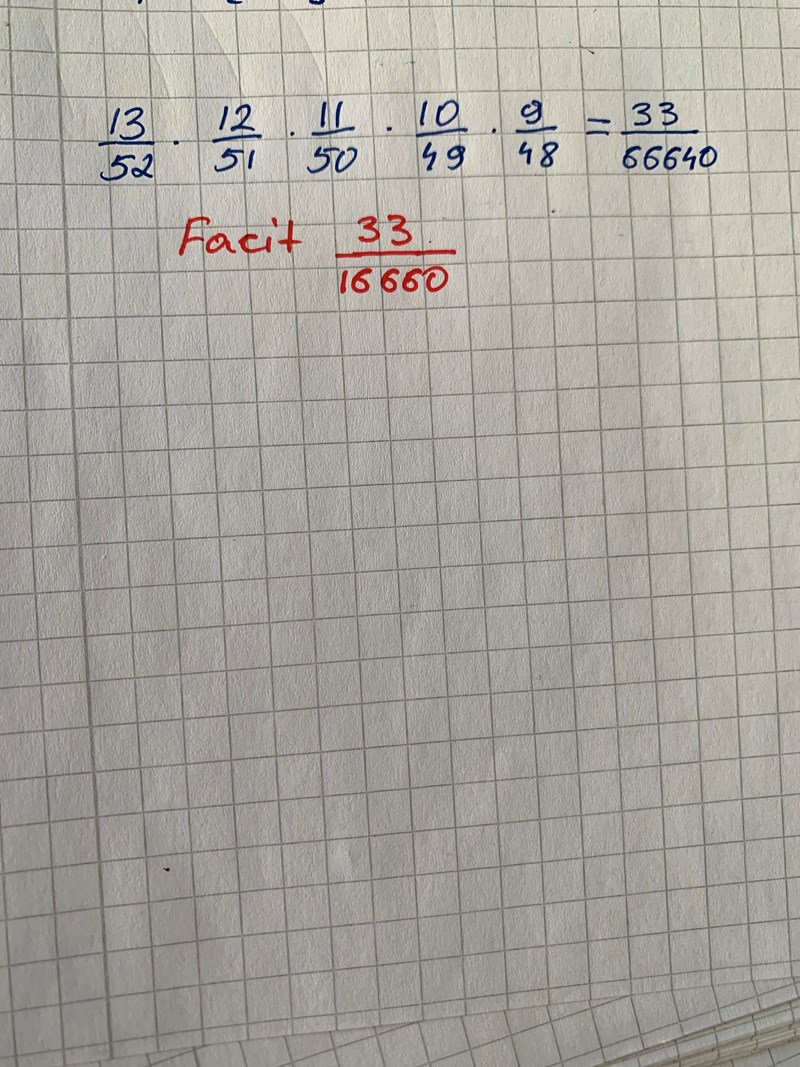 13/52 · 12/51 · 11/50 · 10/49 · 9/48 = 33/66640
Facit 33/16660